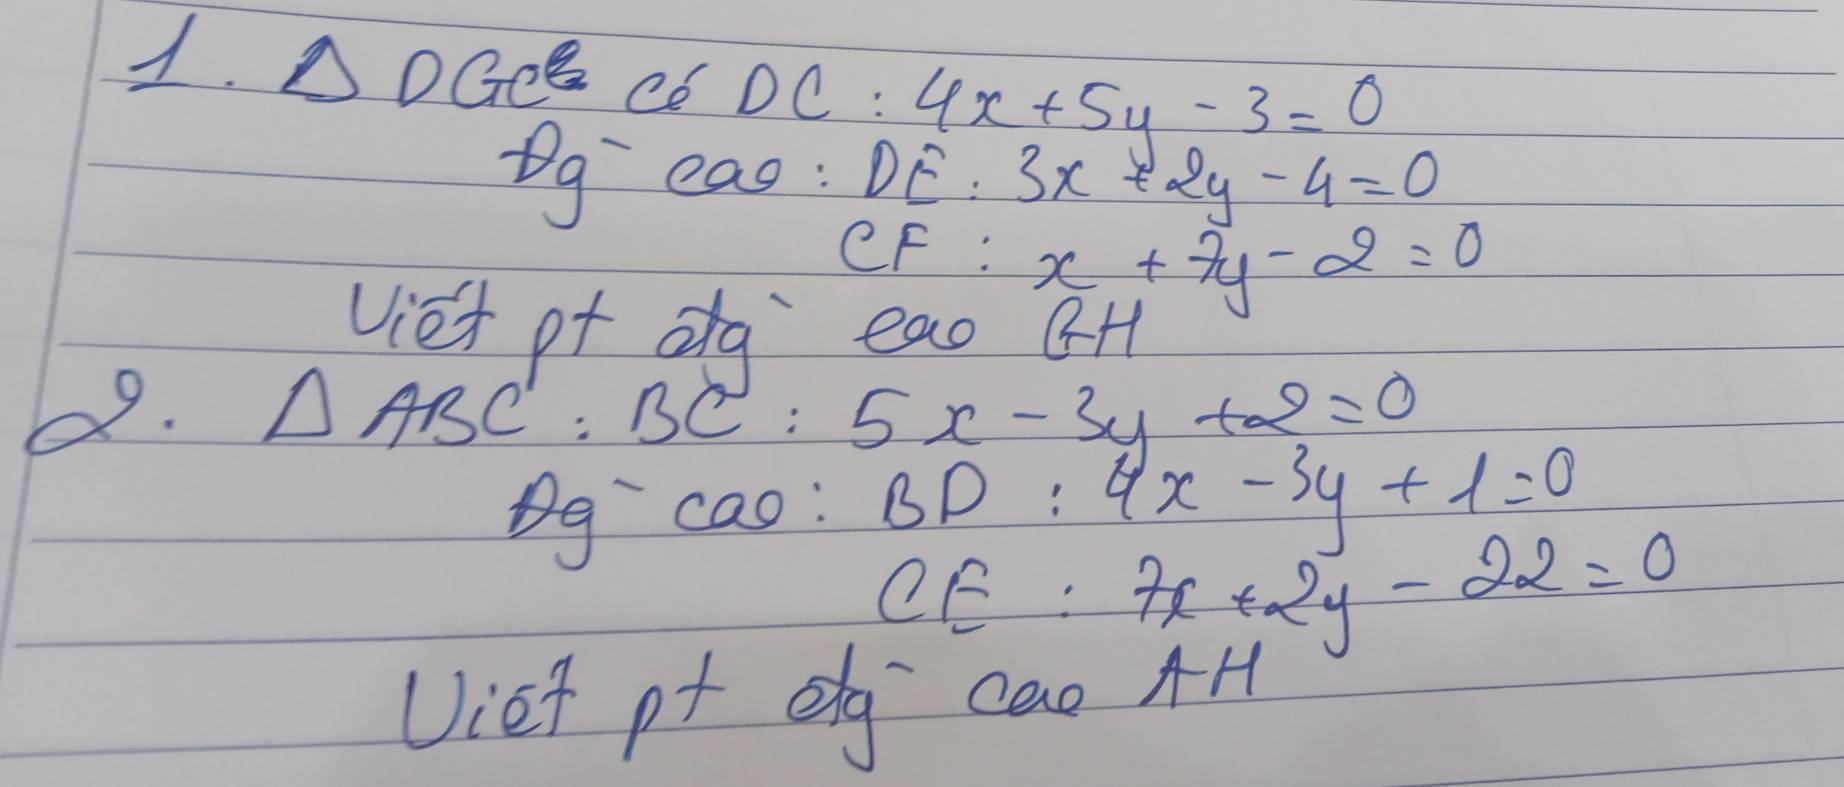 1. Δ DGC có DC : 4x + 5y - 3 = 0
Đg` cao : DE : 3x + 2y - 4 = 0
CF : x + 7y - 2 = 0
Viết pt đg` cao GH
2. Δ ABC : BC : 5x - 3y + 2 = 0
Đg` cao : BD : 4x - 3y + 1 = 0
CE : 7x + 2y - 22 = 0
Viết pt đg` cao AH